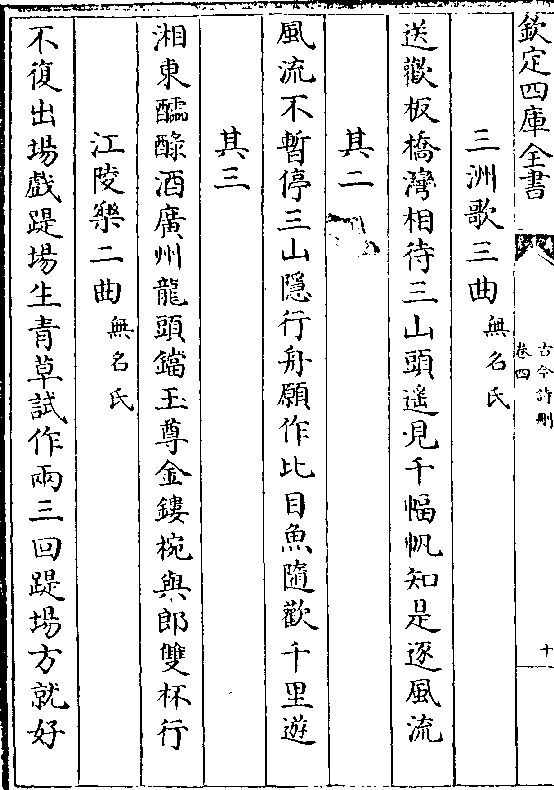 欽定四庫全書
古今詩刪
卷四
十
三洲歌三曲無名氏
送歡板橋灣相待三山頭遙見千幅帆知是逐風流
其二
風流不暫停三山隱行舟願作比目魚隨歡千里遊
其三
湘東醽醁酒廣州龍頭鐺玉尊金鏤椀與郎雙杯行
江陵樂二曲無名氏
不復出場戲踶場生青草試作兩三回踶場方就好